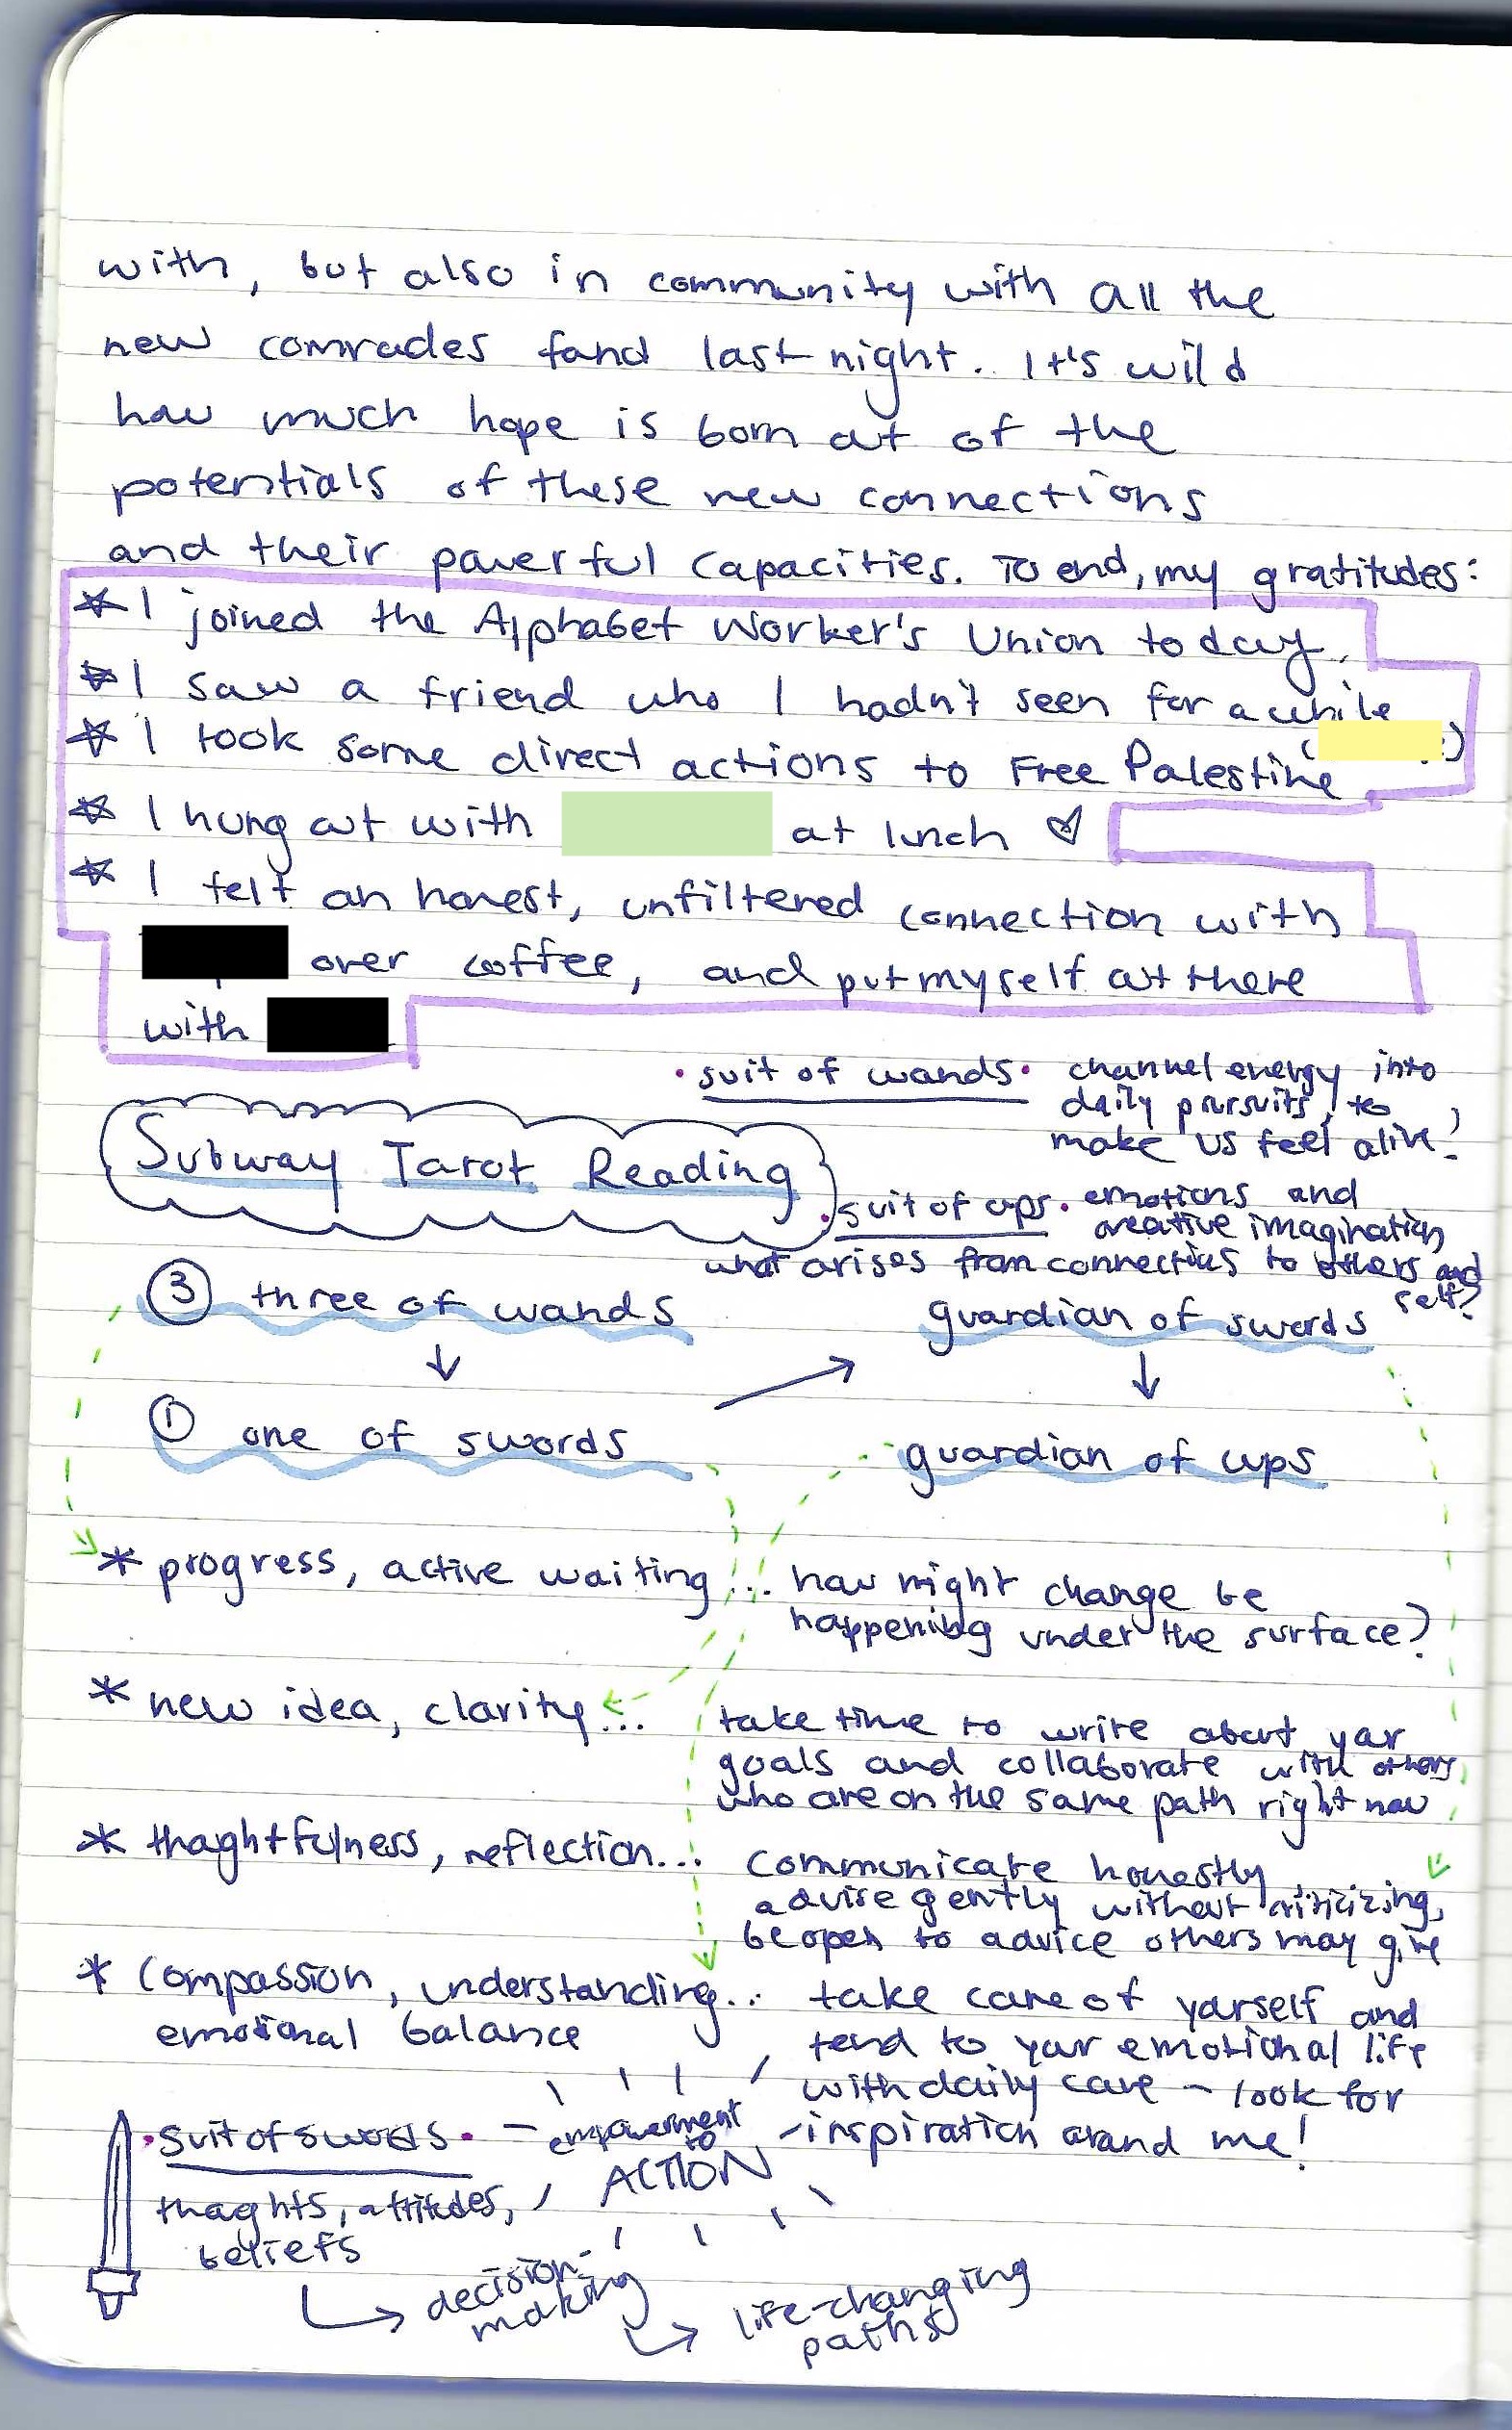 with, but also in community with all the
new comrades found last night. It's wild
how much hope is born out of the
potentials of these new connections
and their powerful capacities. To end, my gratitudes:
I joined the Alphabet Worker's Union today.
I saw a friend who I hadn't seen for a while
( )
I took some direct actions to Free Palestine
I hung out with at lunch ♡
I felt an honest, unfiltered connection with
over coffee, and put myself out there
with
• suit of wands • channel energy into
daily pursuits, to
make us feel alive!
Subway Tarot Reading
• suit of cups • emotions and
creative imagination
what arises from connections to others and
self?
③ three of wands
guardian of swords
↓
→
↓
① one of swords
guardian of cups
* progress, active waiting... how might change be
happening under the surface?
* new idea, clarity... take time to write about your
goals and collaborate with others
who are on the same path right now
* thoughtfulness, reflection... communicate honestly,
advise gently without criticizing,
be open to advice others may give
* compassion, understanding... take care of yourself and
emotional balance
tend to your emotional life
with daily care - look for
inspiration around me!
• suit of swords • - empowerment
to
ACTION
thoughts, attitudes,
beliefs
decision-
making
life-changing
paths